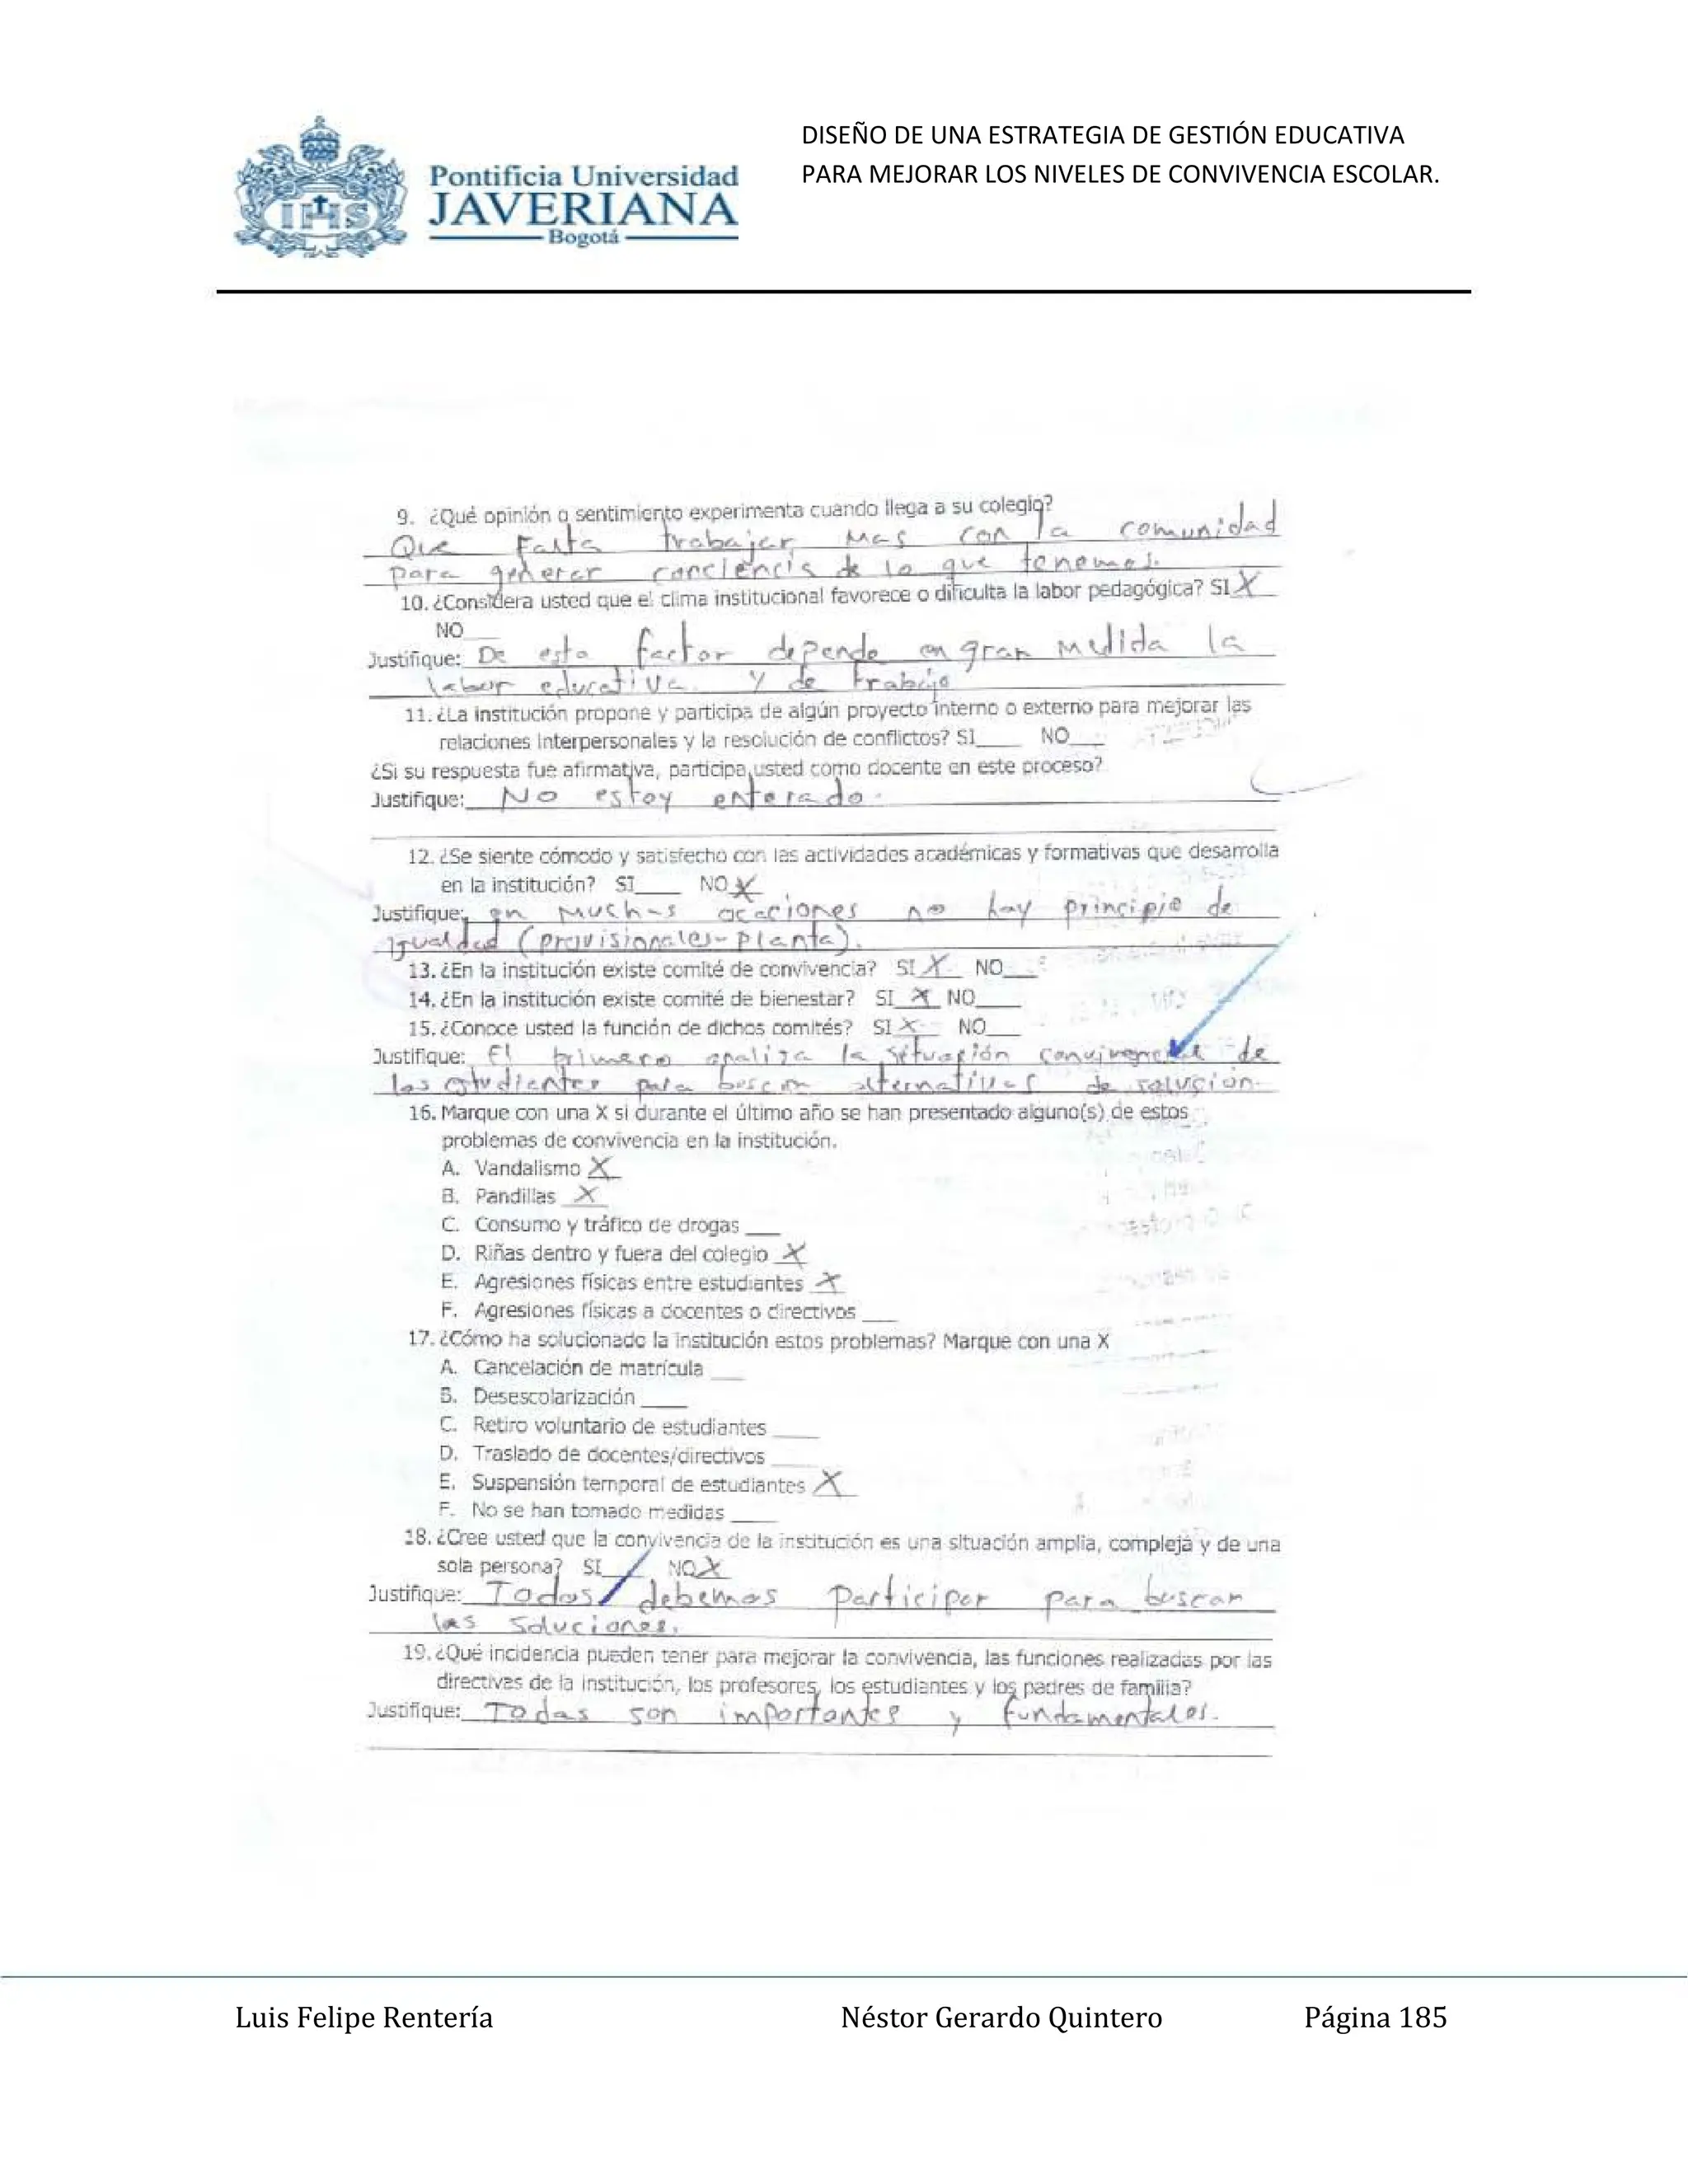 DISEÑO DE UNA ESTRATEGIA DE GESTIÓN EDUCATIVA
PARA MEJORAR LOS NIVELES DE CONVIVENCIA ESCOLAR.
Pontificia Universidad
JAVERIANA
Bogotá
IHS
9. ¿Qué opinión o sentimiento experimenta cuando llega a su colegio?
Que Falta trabajar mas con la comunidad
para generar conciencia de lo que tenemos.
10. ¿Considera usted que el clima institucional favorece o dificulta la labor pedagógica? SI X
NO___
Justifique: De esto factor depende en gran medida la
labor educativa y de trabajo
11. ¿La institución propone y participa de algún proyecto interno o externo para mejorar las
relaciones interpersonales y la resolución de conflictos? SI___ NO___
¿Si su respuesta fue afirmativa, participa usted como docente en este proceso?
Justifique: No estoy enterado.
12. ¿Se siente cómodo y satisfecho con las actividades académicas y formativas que desarrolla
en la institución? SI___ NO X
Justifique: en muchas ocaciones no hay principio de
igualdad (provisionales-planta).
13. ¿En la institución existe comité de convivencia? SI X NO___
14. ¿En la institución existe comité de bienestar? SI X NO___
15. ¿Conoce usted la función de dichos comités? SI X NO___
Justifique: El primero analiza la situación convivencial de
los estudiantes para buscar alternativas de solución.
16. Marque con una X si durante el último año se han presentado alguno(s) de estos
problemas de convivencia en la institución.
A. Vandalismo X
B. Pandillas X
C. Consumo y tráfico de drogas ___
D. Riñas dentro y fuera del colegio X
E. Agresiones físicas entre estudiantes X
F. Agresiones físicas a docentes o directivos ___
17. ¿Cómo ha solucionado la institución estos problemas? Marque con una X
A. Cancelación de matrícula ___
B. Desescolarización ___
C. Retiro voluntario de estudiantes ___
D. Traslado de docentes/directivos ___
E. Suspensión temporal de estudiantes X
F. No se han tomado medidas ___
18. ¿Cree usted que la convivencia de la institución es una situación amplia, compleja y de una
sola persona? SI___ NO X
Justifique: Todos debemos participar para buscar
las soluciones.
19. ¿Qué incidencia pueden tener para mejorar la convivencia, las funciones realizadas por las
directivas de la institución, los profesores, los estudiantes y los padres de familia?
Justifique: Todas son importantes y fundamentales.
Luis Felipe Rentería Néstor Gerardo Quintero Página 185